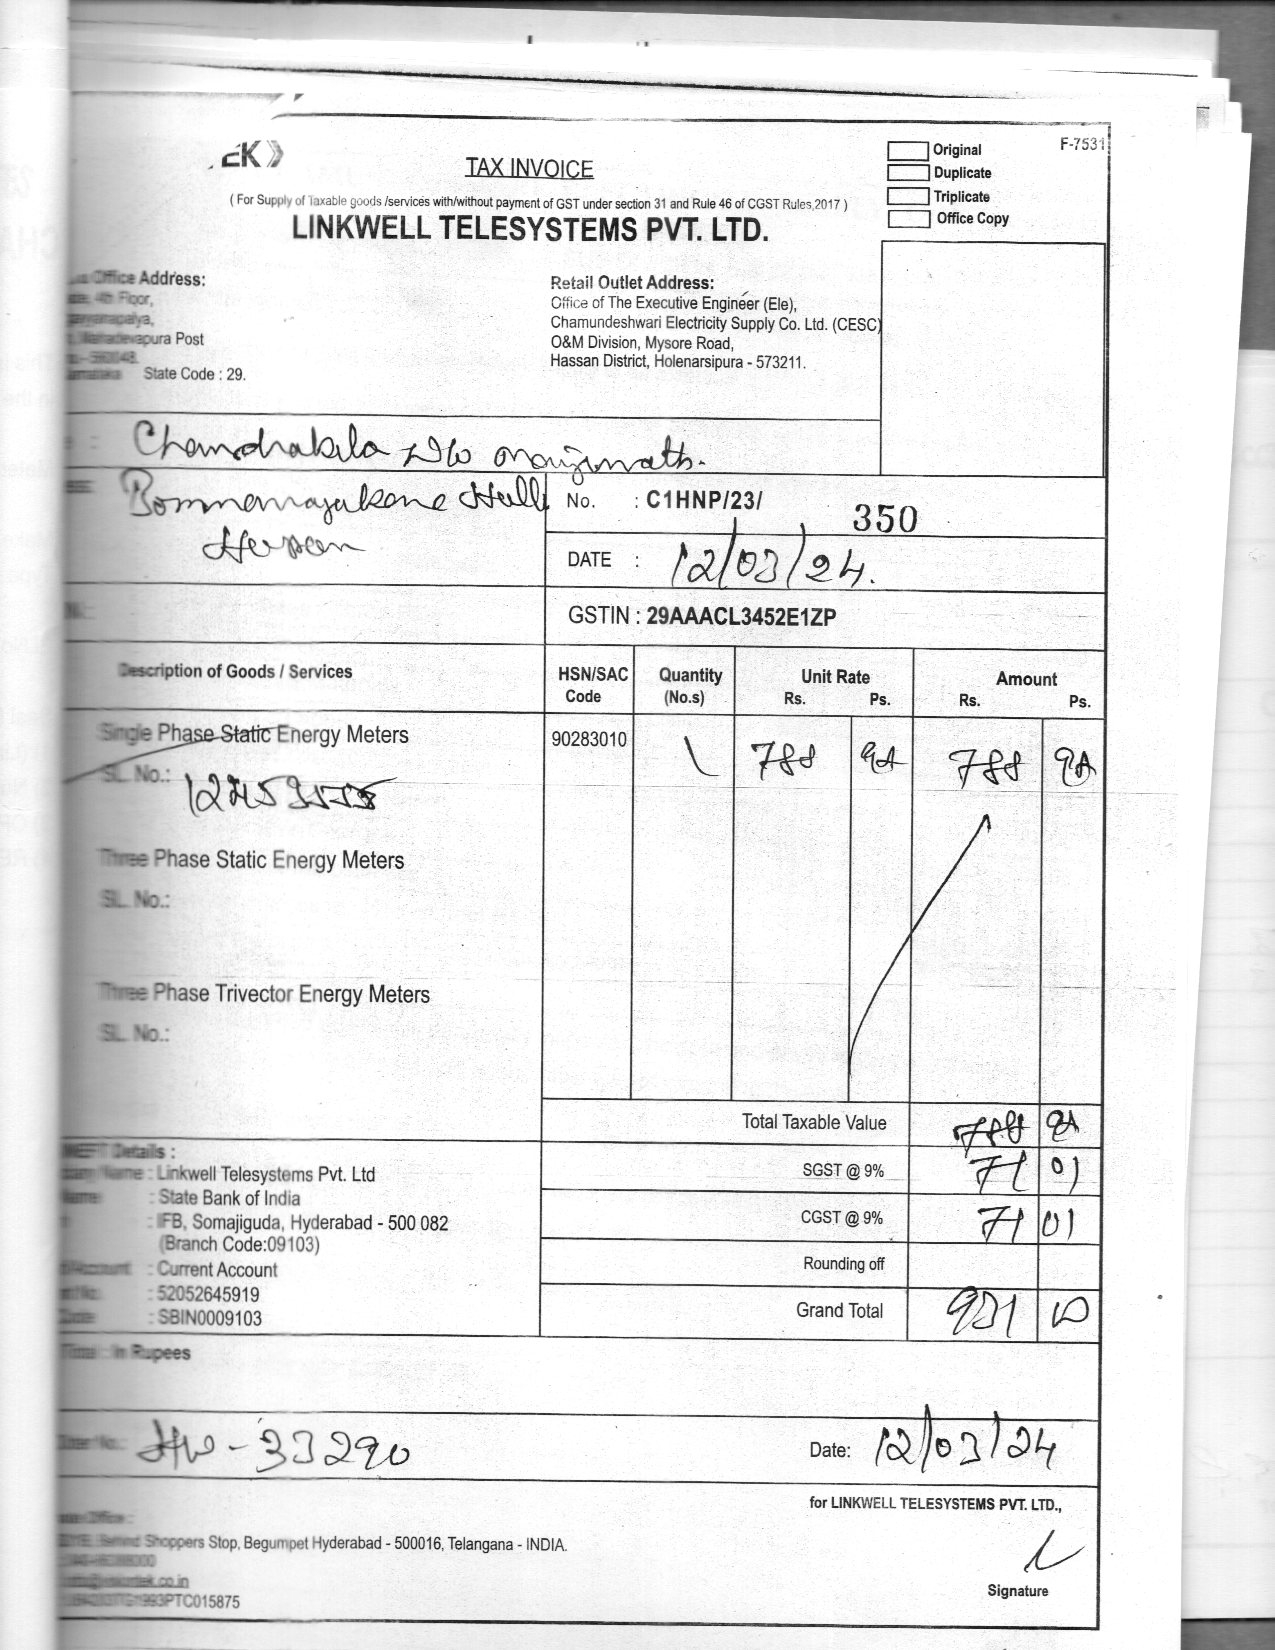 F-7531
Original
TAX INVOICE
Duplicate
Triplicate
Office Copy
( For Supply of Taxable goods /services with/without payment of GST under section 31 and Rule 46 of CGST Rules,2017 )
LINKWELL TELESYSTEMS PVT. LTD.
Office Address:
4th Floor,
Mahadevapura Post
State Code : 29.
Retail Outlet Address:
Office of The Executive Engineer (Ele),
Chamundeshwari Electricity Supply Co. Ltd. (CESC)
O&M Division, Mysore Road,
Hassan District, Holenarsipura - 573211.
Chandrakala W/o Manjunath.
No. : C1HNP/23/ 350
DATE : 12/03/24.
GSTIN : 29AAACL3452E1ZP
Description of Goods / Services HSN/SAC Code Quantity (No.s) Unit Rate Rs. Ps. Amount Rs. Ps.
Single Phase Static Energy Meters 90283010 1 788 98 788 98
SL. No.:
Three Phase Static Energy Meters
SL. No.:
Three Phase Trivector Energy Meters
SL. No.:
Total Taxable Value 788 98
SGST @ 9% 71 01
CGST @ 9% 71 01
Rounding off
Grand Total 931 00
Details :
Name : Linkwell Telesystems Pvt. Ltd
: State Bank of India
: IFB, Somajiguda, Hyderabad - 500 082
(Branch Code:09103)
: Current Account
: 52052645919
: SBIN0009103
Total : In Rupees
33290
Date: 12/03/24
for LINKWELL TELESYSTEMS PVT. LTD.,
Behind Shoppers Stop, Begumpet Hyderabad - 500016, Telangana - INDIA.
1993PTC015875
Signature